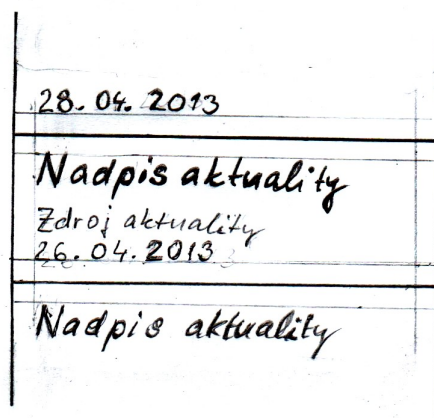 28. 04. 2013
Nadpis aktuality
Zdroj aktuality
26. 04. 2013
Nadpis aktuality